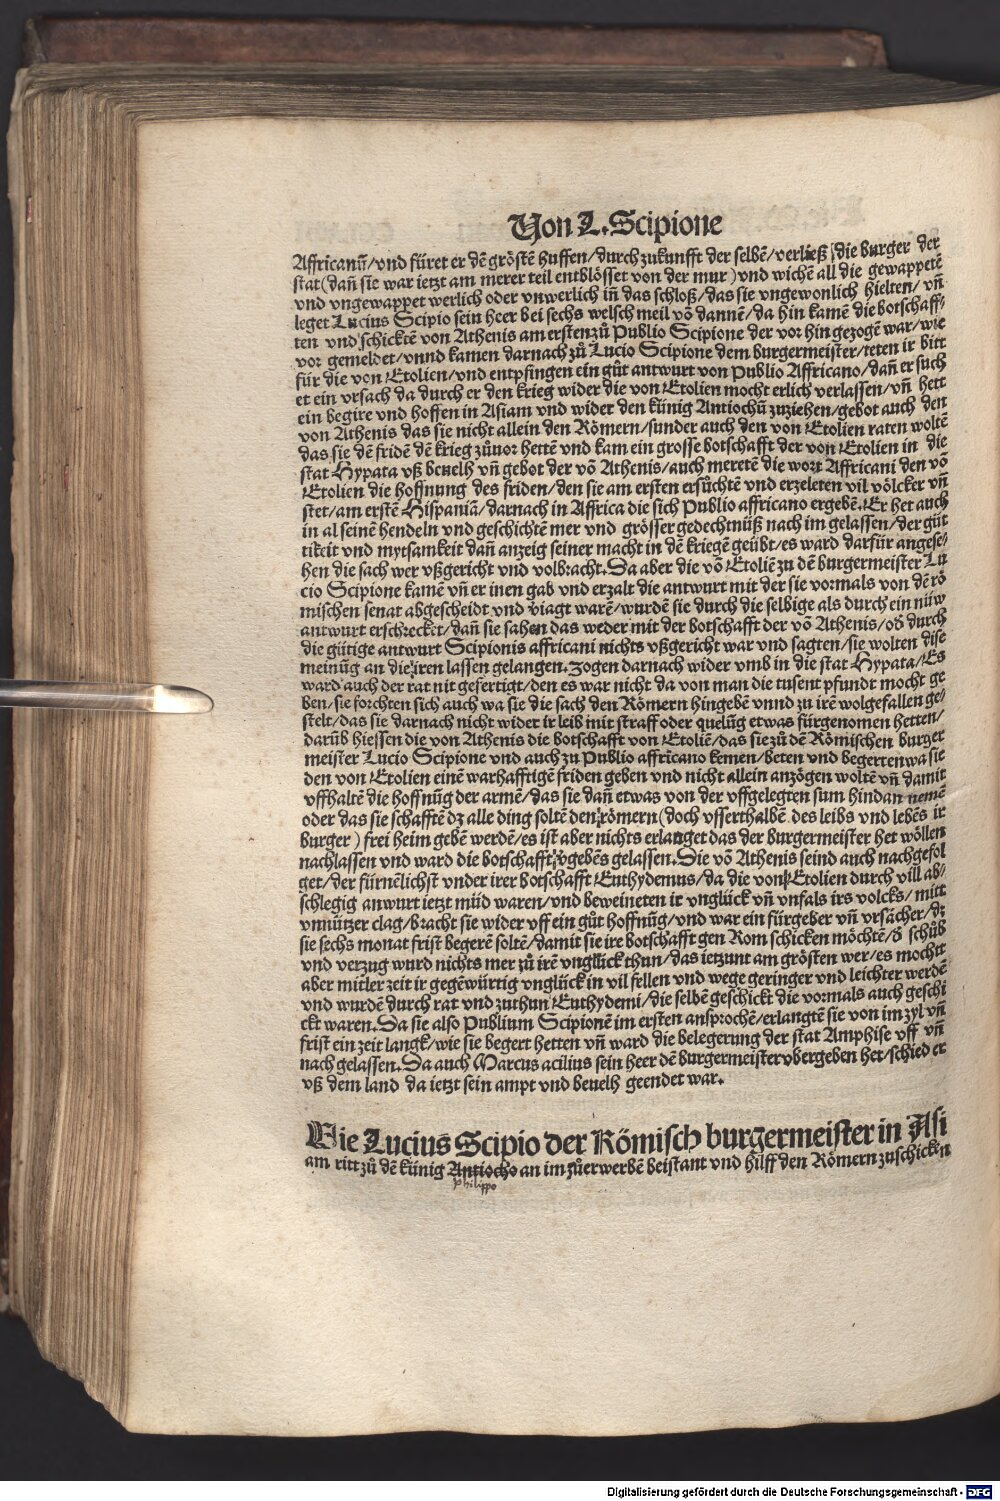 Von L. Scipione
Affricanũ/vnd füret er dẽ gröstẽ huffen/durch zukunfft der selbẽ/verließ die burger der
stat(dañ sie war ietzt am merer teil entblösset von der mur) vnd wichẽ all die gewappetẽ
vnd vngewappet werlich oder vnwerlich iñ das schloß/das sie vngewonlich hielten/vñ
leget Lucius Scipio sein heer bei sechs welsch meil võ dannẽ/da hin kamẽ die botschaff⸗
ten vnd schicktẽ von Athenis am ersten zů Publio Scipione der vor hin gezogẽ war/wie
vor gemeldet/vnnd kamen darnach zů Lucio Scipione dem burgermeister/teten ir bitt
für die von Etolien/vnd entpfingen ein gůt antwurt von Publio Affricano/dañ er such
et ein vrsach da durch er den krieg wider die von Etolien mocht erlich verlassen/vñ hett
ein begire vnd hoffen in Asiam vnd wider den künig Antiochũ zuziehen/gebot auch den
von Athenis das sie nicht allein den Römern/sunder auch den von Etolien raten woltẽ
das sie dẽ fridẽ dẽ krieg zůuor hettẽ vnd kam ein grosse botschafft der von Etolien in die
stat Hypata vß beuelh vñ gebot der võ Athenis/auch meretẽ die wort Affricani den võ
Etolien die hoffnung des friden/den sie am ersten ersůchtẽ vnd erzeleten vil völcker vñ
stet/am erstẽ Hispaniã/darnach in Affrica die sich Publio affricano ergebẽ. Er het auch
in al seinẽ hendeln vnd geschichtẽ mer vnd grösser gedechtnüß nach im gelassen/der güt
tikeit vnd mytsamkeit dañ anzeig seiner macht in dẽ kriegẽ geübt/es ward darfür angese⸗
hen die sach wer vßgericht vnd volbracht. Da aber die võ Etoliẽ zu dẽ burgermeister Lu
cio Scipione kamẽ vñ er inen gab vnd erzalt die antwurt mit der sie vormals von dẽ rö
mischen senat abgescheidt vnd viagt warẽ/wurdẽ sie durch die selbige als durch ein nüw
antwurt erschrecket/dañ sie sahen das weder mit der botschafft der võ Athenis/od̃ durch
die gütige antwurt Scipionis affricani nichts vßgericht war vnd sagten/sie wolten dise
meinũg an die iren lassen gelangen. Zogen darnach wider vmb in die stat Hypata/Es
ward auch der rat nit gefertigt/den es war nicht da von man die tusent pfundt mocht ge
ben/sie forchten sich auch wa sie die sach den Römern hingebẽ vnnd zu irẽ wolgefallen ge⸗
stelt/das sie darnach nicht wider ir leib mit straff oder quelũg etwas fürgenomen hetten/
darũb hiessen die von Athenis die botschafft von Etoliẽ/das sie zů dẽ Römischen burger
meister Lucio Scipione vnd auch zu Publio affricano kemen/beten vnd begerten wa sie
den von Etolien einẽ warhafftigẽ friden geben vnd nicht allein anzögen woltẽ vñ damit
vffhaltẽ die hoffnũg der armẽ/das sie dañ etwas von der vffgelegten sum hindan nemẽ
oder das sie schafftẽ dz alle ding soltẽ den römern(doch vsserthalbẽ des leibs vnd lebẽs ir
burger) frei heim gebẽ werdẽ/es ist aber nichts erlanget das der burgermeister het wöllen
nachlassen vnd ward die botschafft vgebẽs gelassen. Die võ Athenis seind auch nachgefol
get/der fürnẽlichst vnder irer botschafft Euthydemus/da die von Etolien durch vill ab⸗
schlegig anwurt ietzt müd waren/vnd beweineten ir vnglück vñ vnfals irs volcks/mitt
vnnützer clag/bracht sie wider vff ein gůt hoffnũg/vnd war ein fürgeber vñ vrsächer/dz
sie sechs monat frist begerẽ soltẽ/damit sie ire botschafft gen Rom schicken möchtẽ/d̃ schůb
vnd verzug wurd nichts mer zů irẽ vnglück thun/das ietzunt am grösten wer/es mochtt
aber mitler zeit ir gegẽwürtig vnglück in vil fellen vnd wege geringer vnd leichter werdẽ
vnd wurdẽ durch rat vnd zuthun Euthydemi/die selbẽ geschickt die vormals auch geschi
ckt waren. Da sie also Publium Scipionẽ im ersten ansprochẽ/erlangtẽ sie von im zyl vñ
frist ein zeit langk/wie sie begert hetten vñ ward die belegerung der stat Amphise vff vñ
nach gelassen. Da auch Marcus acilius sein heer dẽ burgermeister vbergeben het/schied er
vß dem land da ietzt sein ampt vnd beuelh geendet war.
Wie Lucius Scipio der Römisch burgermeister in Asi
am ritt zů dẽ künig Antiocho an im zůerwerbẽ beistant vnd hilff den Römern zuschicken
philippo
Digitalisierung gefördert durch die Deutsche Forschungsgemeinschaft - DFG